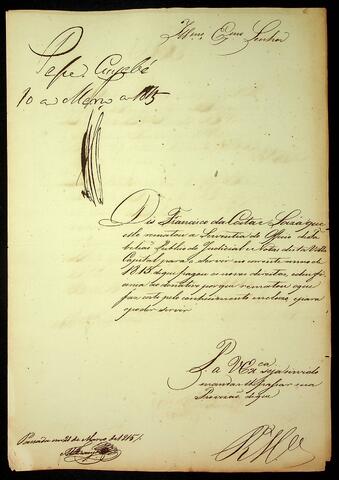 Illmo. Exmo. Senhor
Passe. Cuyabá
10 de Março de 1815
Diz Francisco da Costa e Soiza que
elle rematou a Serventia do Officio de Ta-
belião Publico do Judicial e Notas desta Villa
Capital para a servir no corrente anno de
1815 e que pagou os novos direitos, e deu fi-
ança ao donativo porque rematou o que
faz certo pelo conhecimento incluzo e para
o poder servir
P. a V. Exca.
seja servido
mandar que se passe sua
Provizão do que
R. Mce.
Passada em 21 de Março de 1815